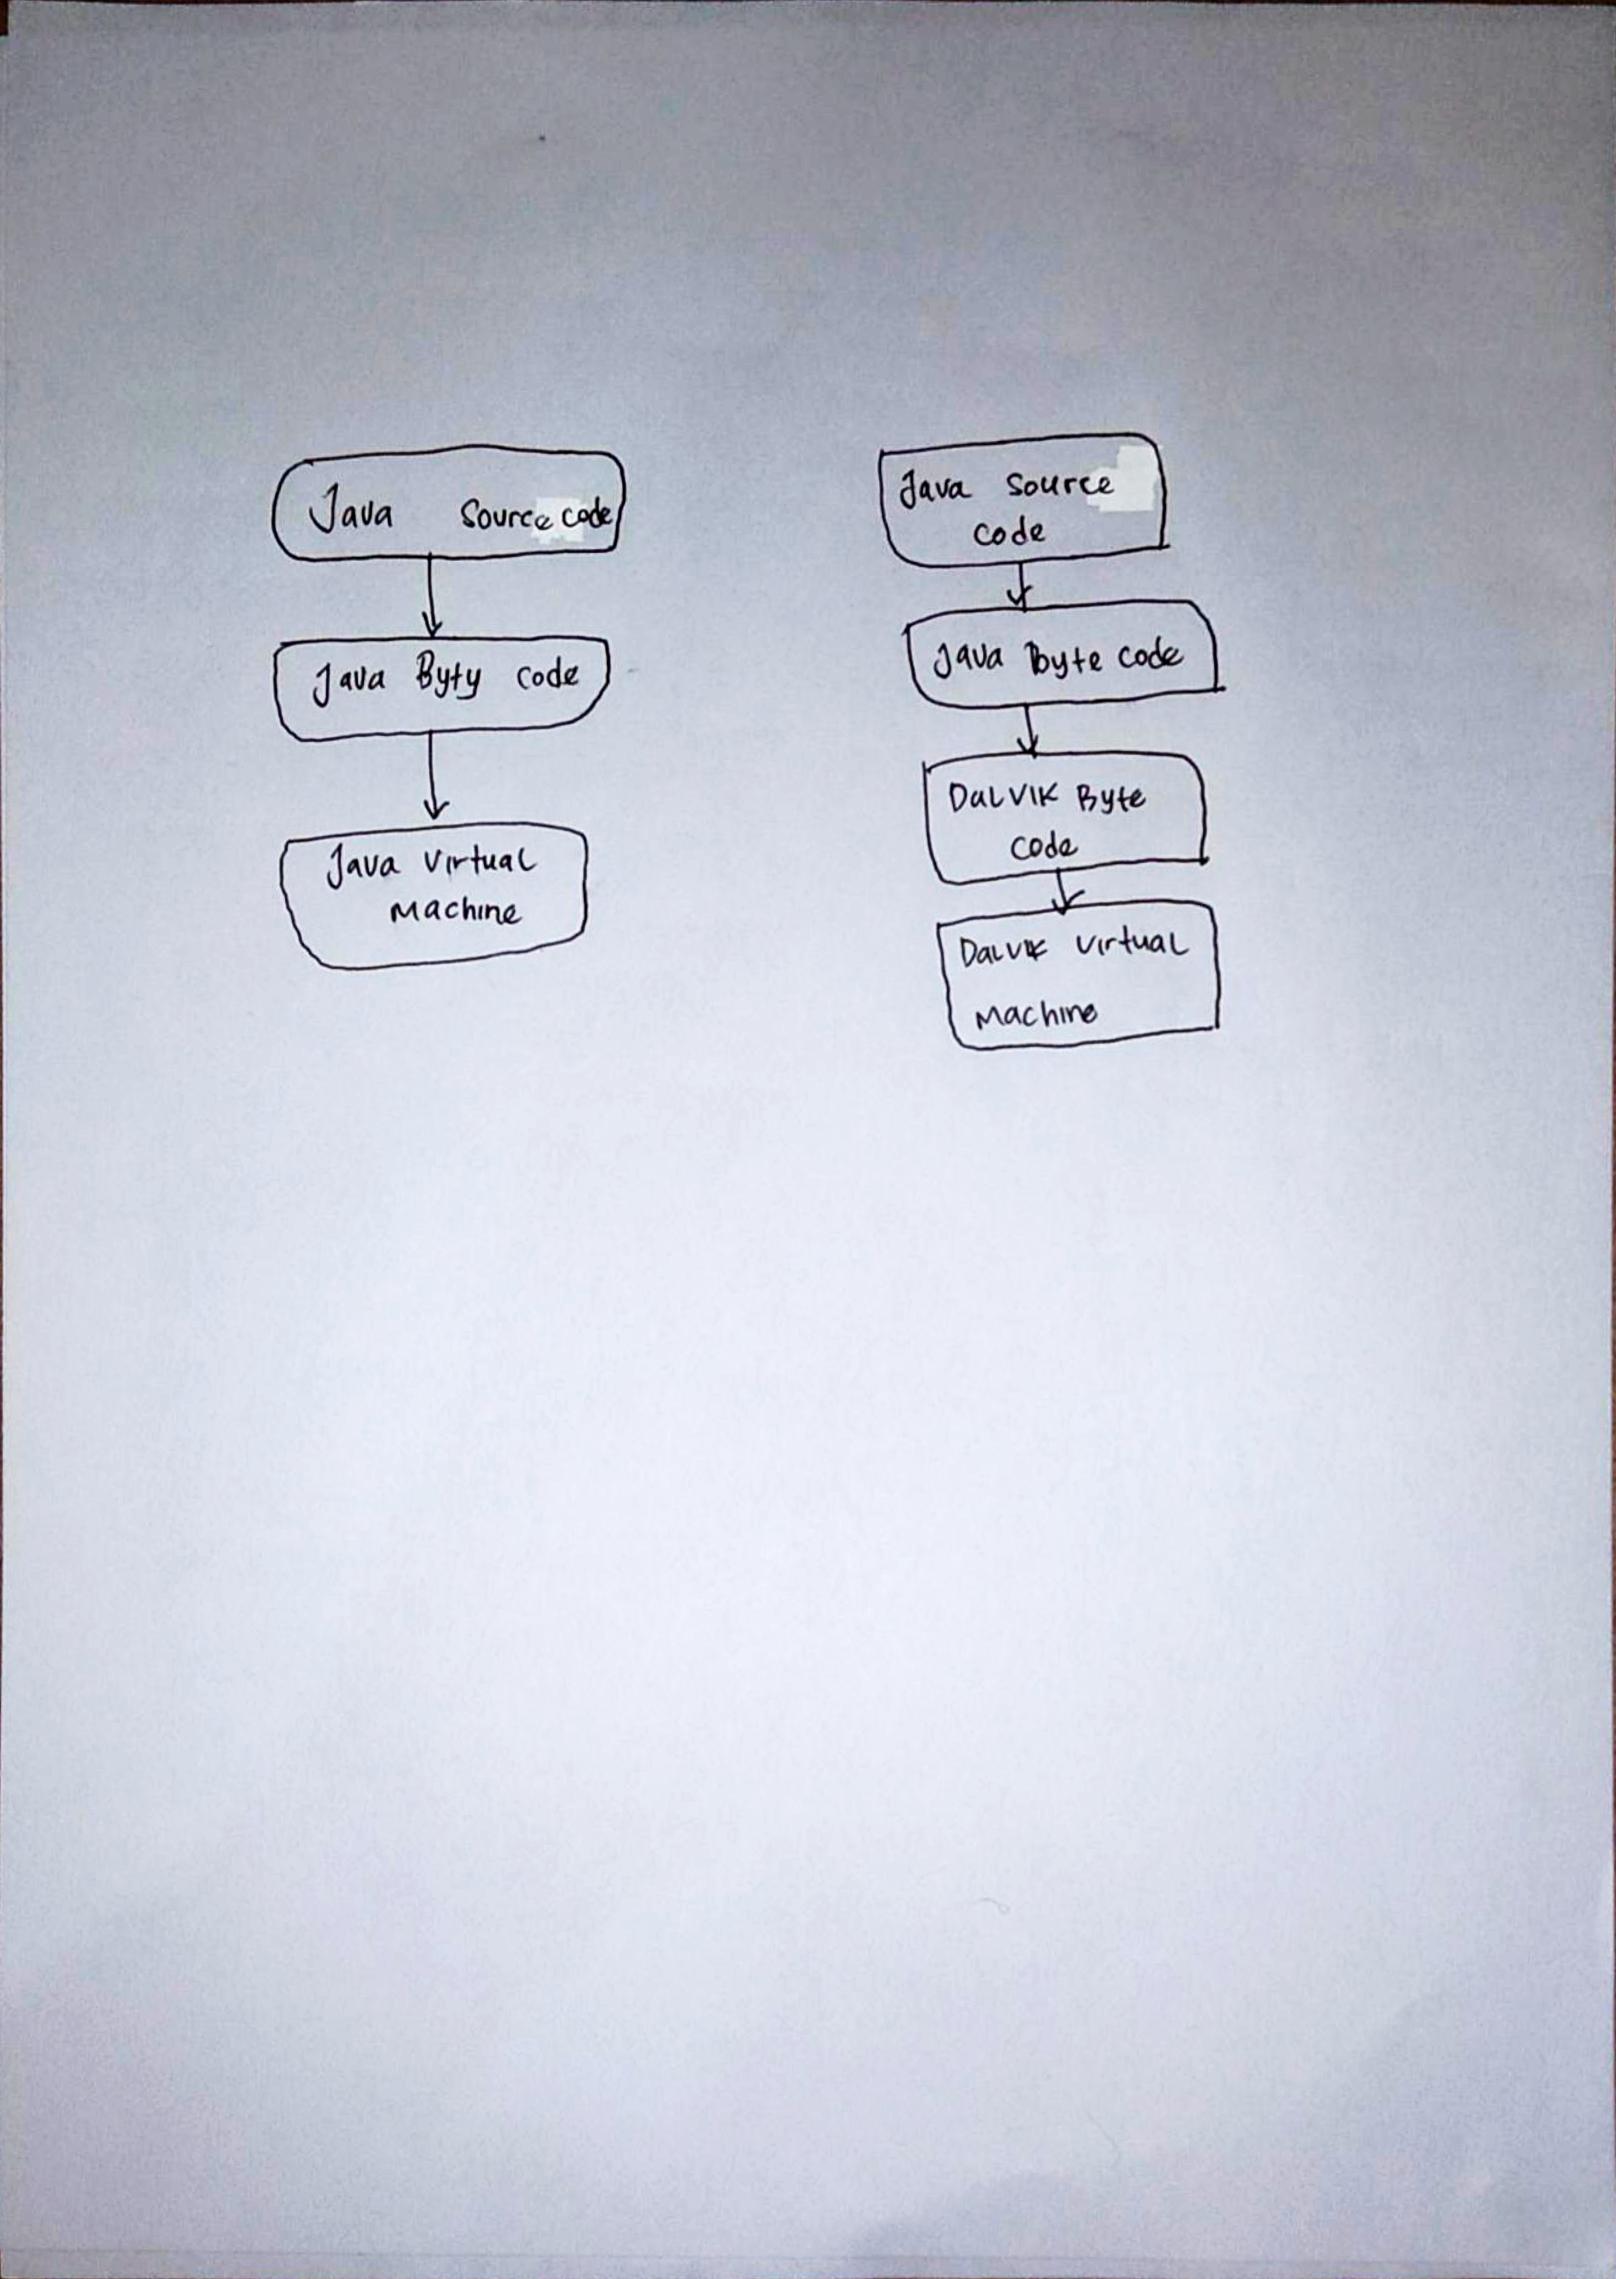 Java Source code
Java Byty code
Java Virtual
Machine
Java Source
code
Java Byte code
DALVIK Byte
code
DALVIK Virtual
Machine